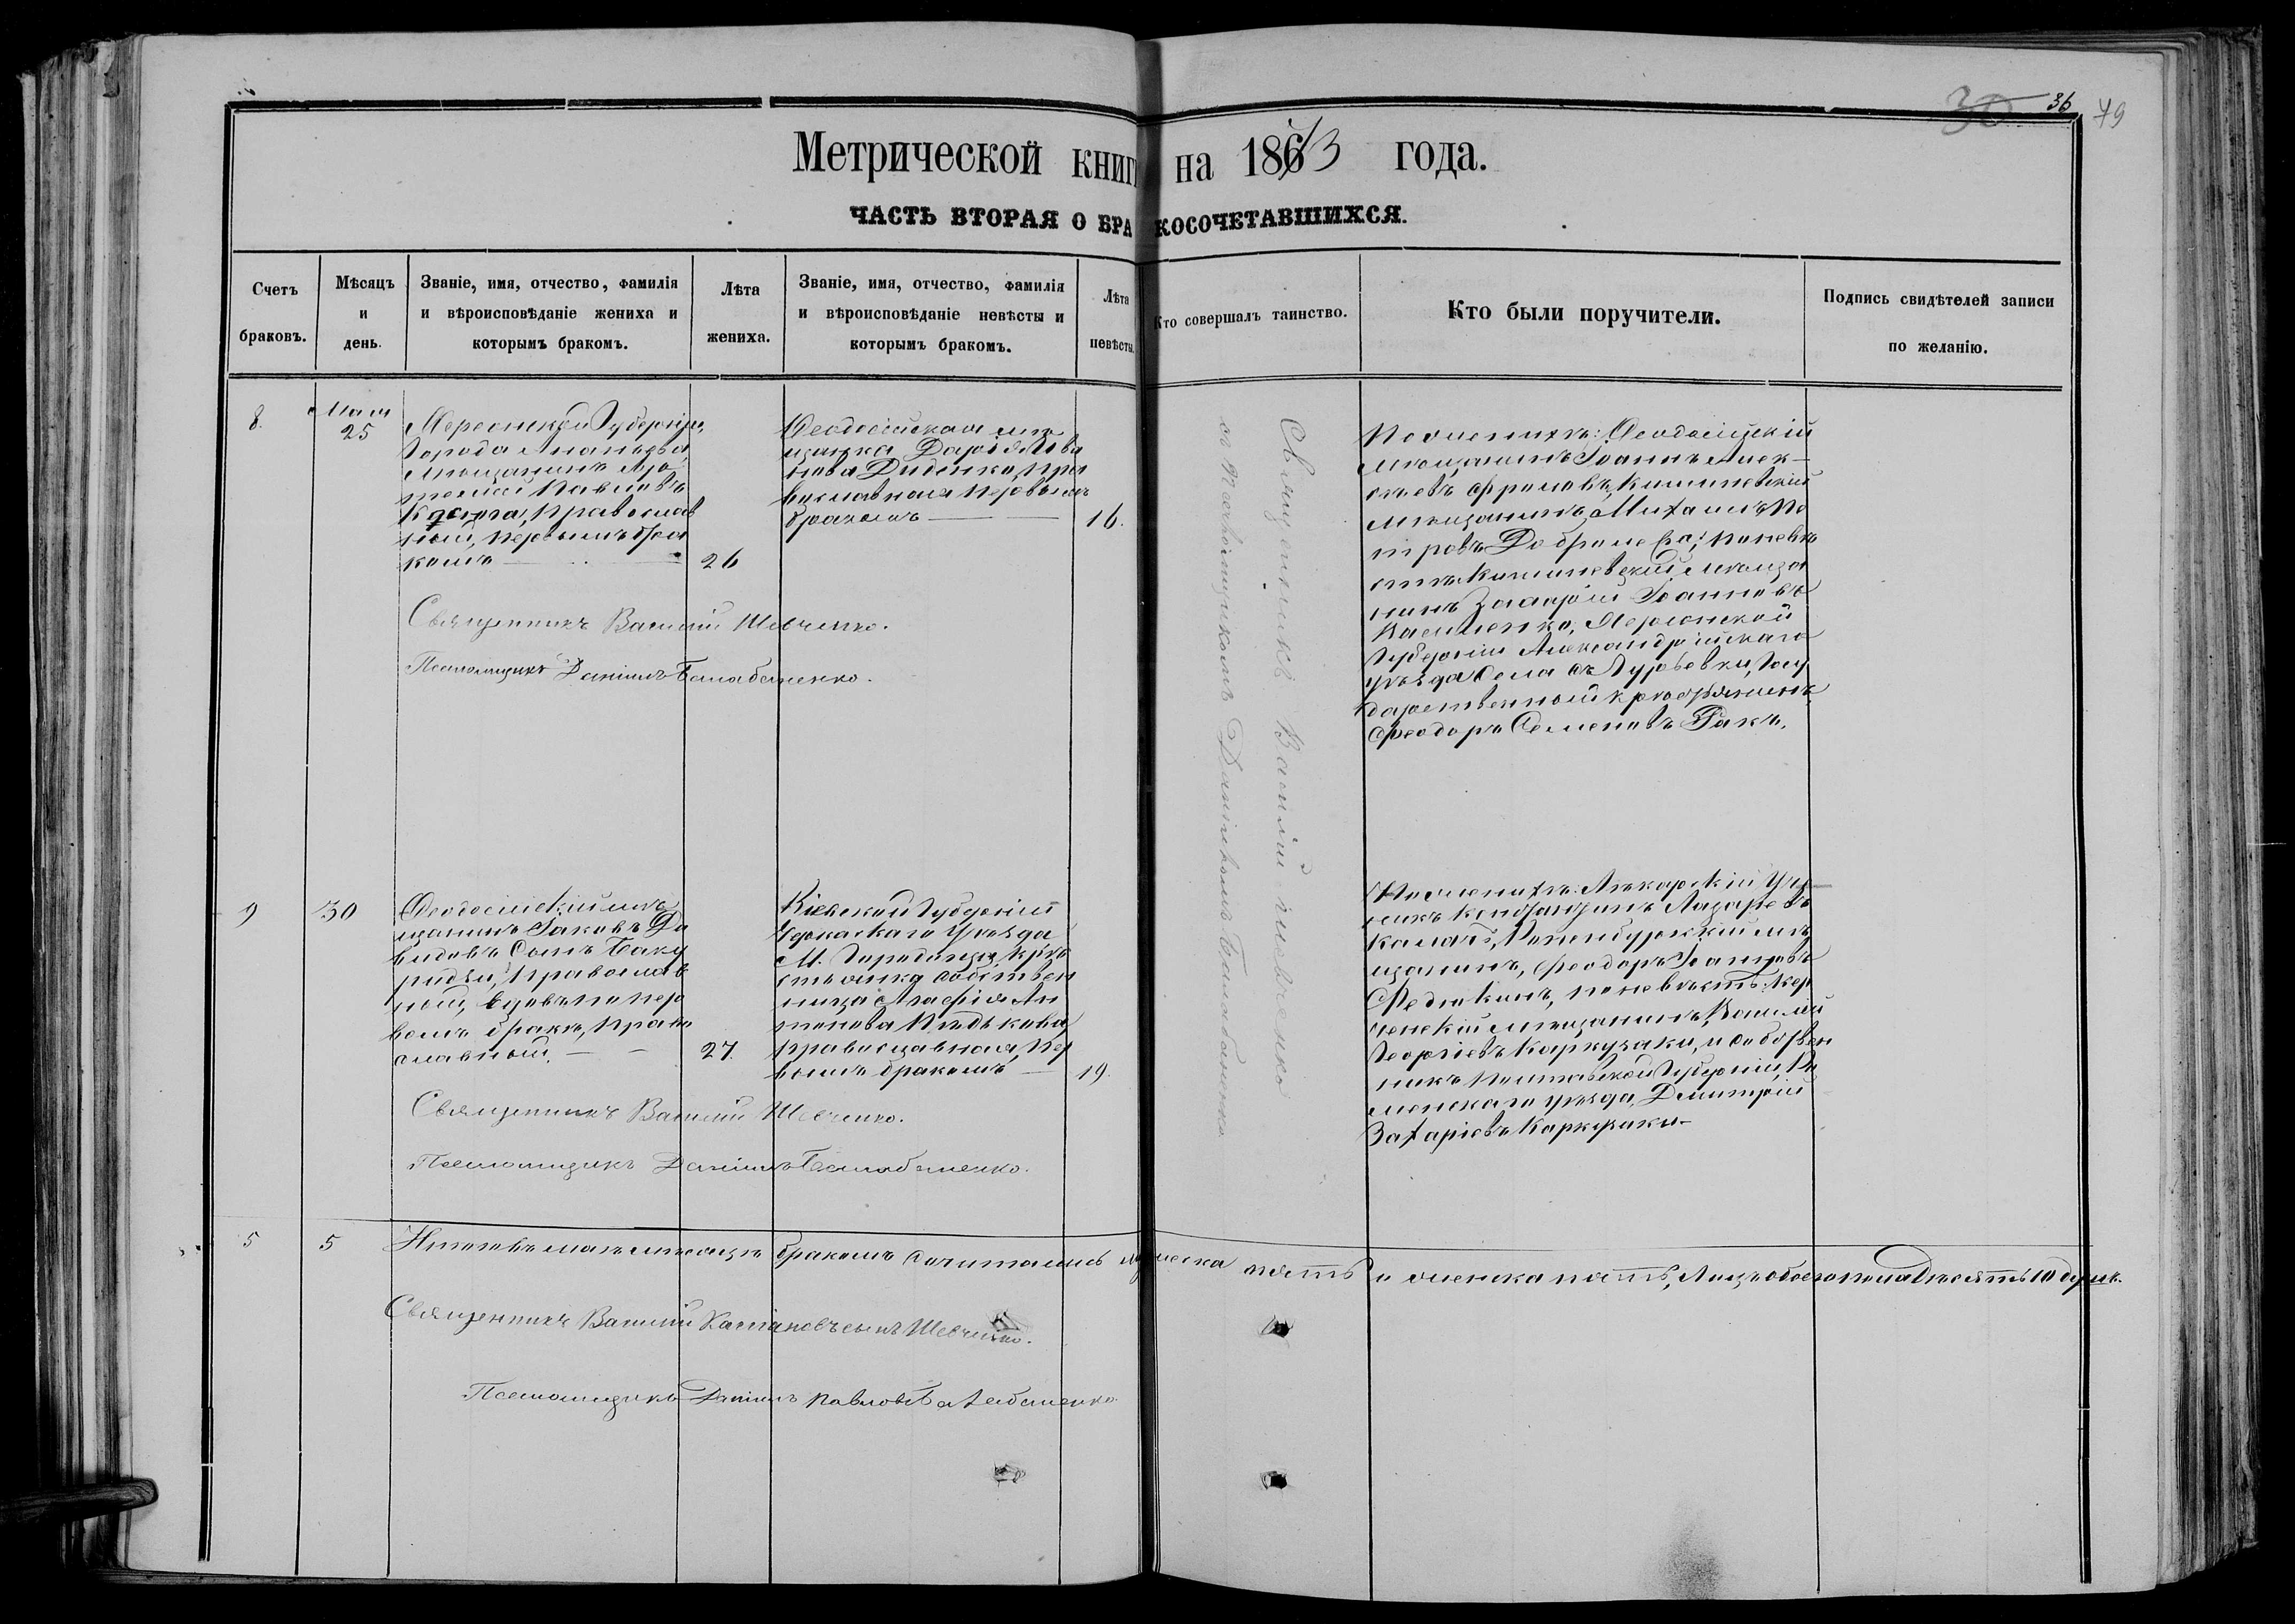 30 36 79
Метрической книги на 1873 года.
ЧАСТЬ ВТОРАЯ О БРАКОСОЧЕТАВШИХСЯ.
Счетъ
браковъ.
Мѣсяцъ
и
день.
Званіе, имя, отчество, фамилія
и вѣроисповѣданіе жениха и
которымъ бракомъ.
Лѣта
жениха.
Званіе, имя, отчество, фамилія
и вѣроисповѣданіе невѣсты и
которымъ бракомъ.
Лѣта
невѣсты.
Кто совершалъ таинство.
Кто были поручители.
Подпись свидѣтелей записи
по желанію.
8.
Мая
25
Херсонской Губерніи,
Города Ананьева
мѣщанинъ
Павловъ
православ
ный, первымъ бра
комъ
26
Феодосійская мѣ
щанка Дарія
нова Диденко, пра
вославная первымъ
бракомъ
16.
Священникъ Василій Шевченко
съ псаломщикомъ Даніиломъ Балабаненко
По женихѣ: Феодосійскій
мѣщанинъ Іоаннъ Алек-
сѣевъ Фроловъ, Кишиневскій
мѣщанинъ Михаилъ Пе
тровъ; по невѣ
стѣ Кишиневскій мѣща
нинъ Захарій Іоанновъ
Василенко, Херсонской
Губерніи Александрійскаго
уѣзда села Гурьевки, Госу
дарственный крестьянинъ
Феодоръ Семеновъ Ракъ.
Священникъ Василій Шевченко.
Псаломщикъ Даніилъ Балабаненко.
9
30
Феодосійскій мѣ
щанинъ Іаковъ Да
видовъ Сынъ
православ
ный, вдовъ по пер
вомъ бракѣ, право
славный.
27.
Кіевской Губерніи
Черкаскаго Уѣзда
М. Городища кре
стьянка собствен
ница Агафія Ан
тонова
православная, пер
вымъ бракомъ
19.
По женихѣ: Лекарскій Уче
никъ Константинъ Лазаревъ
мѣ
щанинъ, Феодоръ Іоанновъ
Федюкинъ, по невѣстѣ: Кер
ченскій мѣщанинъ, Василій
Георгіевъ Каркузаки, и собствен
никъ Полтавской Губерніи, Ро
менскаго уѣзда, Димитрій
Захаріевъ Каркузаки
Священникъ Василій Шевченко.
Псаломщикъ Даніилъ Балабаненко.
5
5
Итого въ маѣ мѣсяцѣ бракомъ сочитались мужеска пять и женска пять, Лицъ обоего пола десять 10 душъ.
Священникъ Василій Касіановъ сынъ Шевченко.
Псаломщикъ Даніилъ Павловъ Балабаненко.